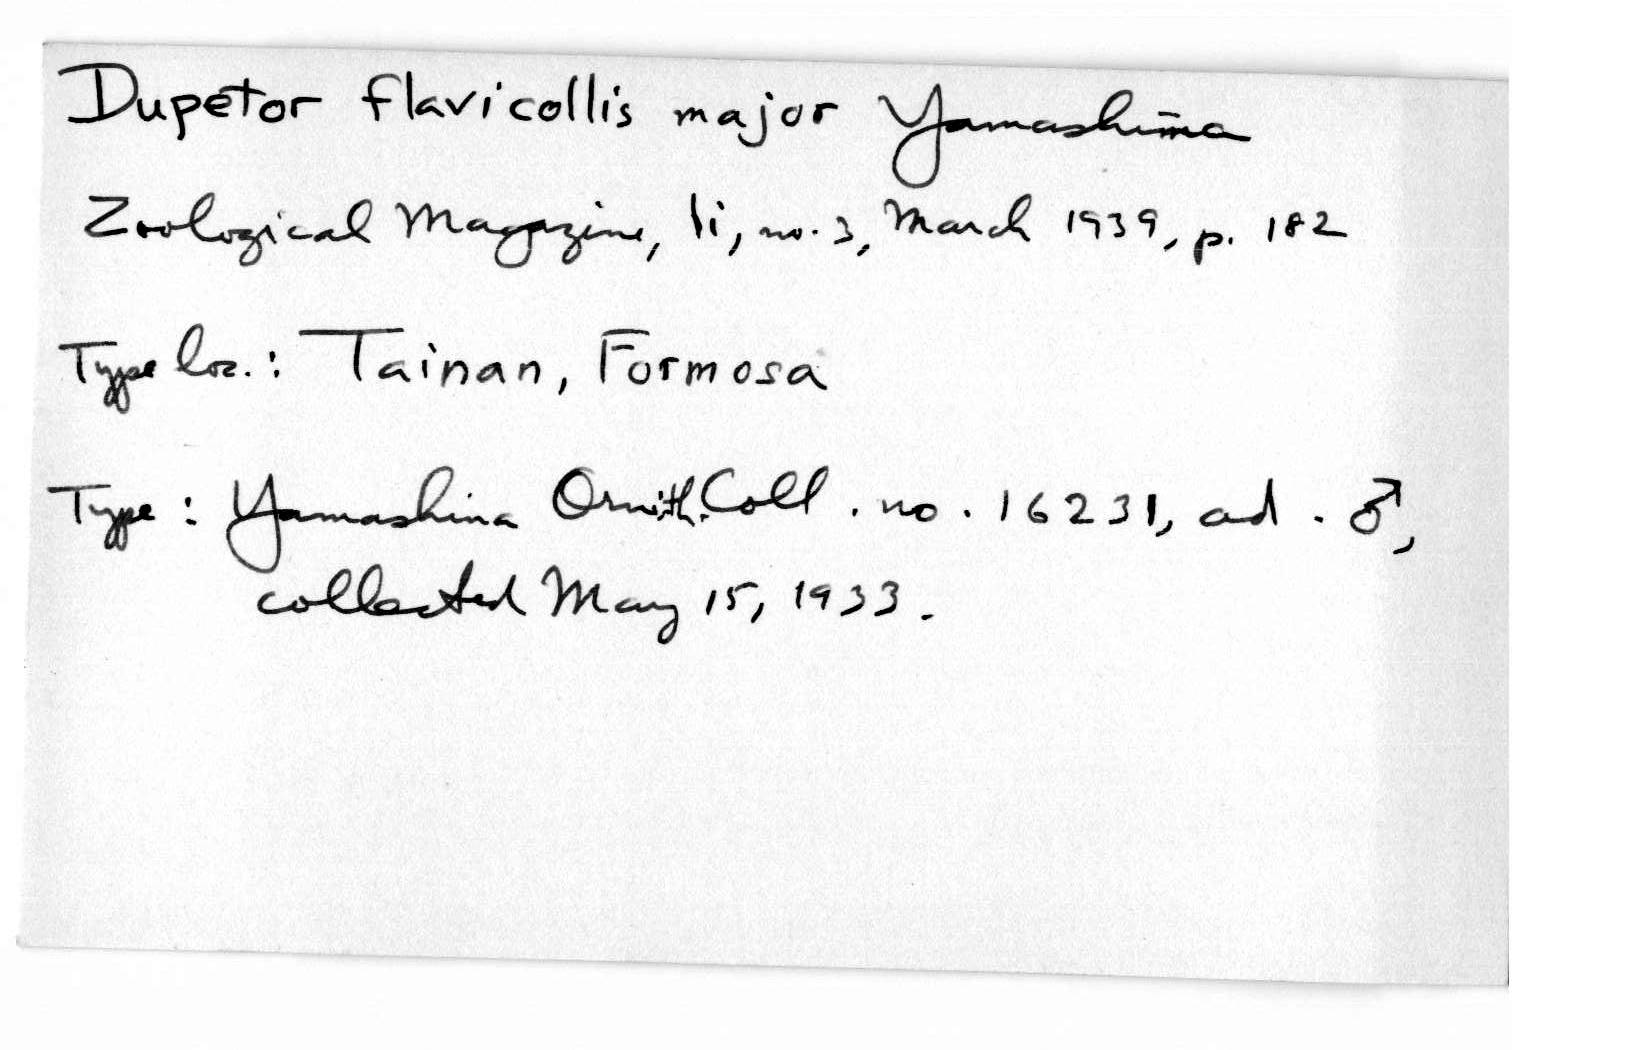 Dupetor flavicollis major Yamashina
Zoological Magazine, li, no. 3, March 1939, p. 182
Type loc.: Tainan, Formosa
Type: Yamashina Ornith. Coll. no. 16231, ad. ♂,
collected May 15, 1933.